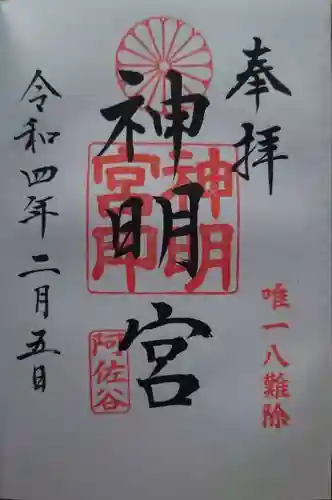 奉拝
唯一八難除
神明宮
神明宮印
阿佐谷
令和四年二月五日